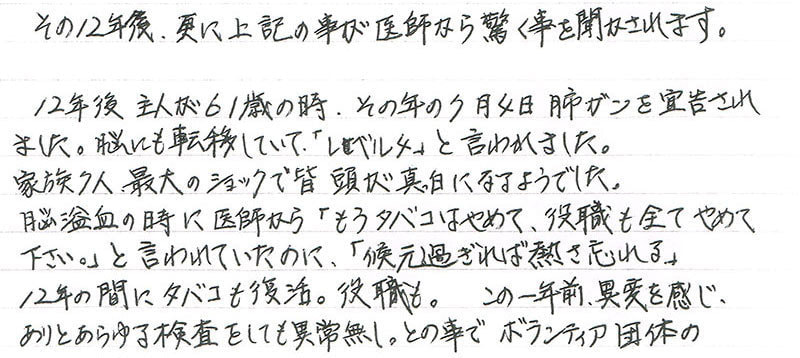 その12年後、更に上記の事が医師から驚く事を聞かされます。
12年後 主人が61歳の時、その年の7月4日 肺ガンを宣告され
ました。脳にも転移していて、「レベル4」と言われました。
家族7人 最大のショックで皆 頭が真白になるようでした。
脳溢血の時に医師から「もうタバコはやめて、役職も全てやめて
下さい。」と言われていたのに、「候元過ぎれば熱さ忘れる」
12年の間にタバコも復活。役職も。 この一年前、異変を感じ、
ありとあらゆる検査をしても異常無し。との事で ボランティア団体の